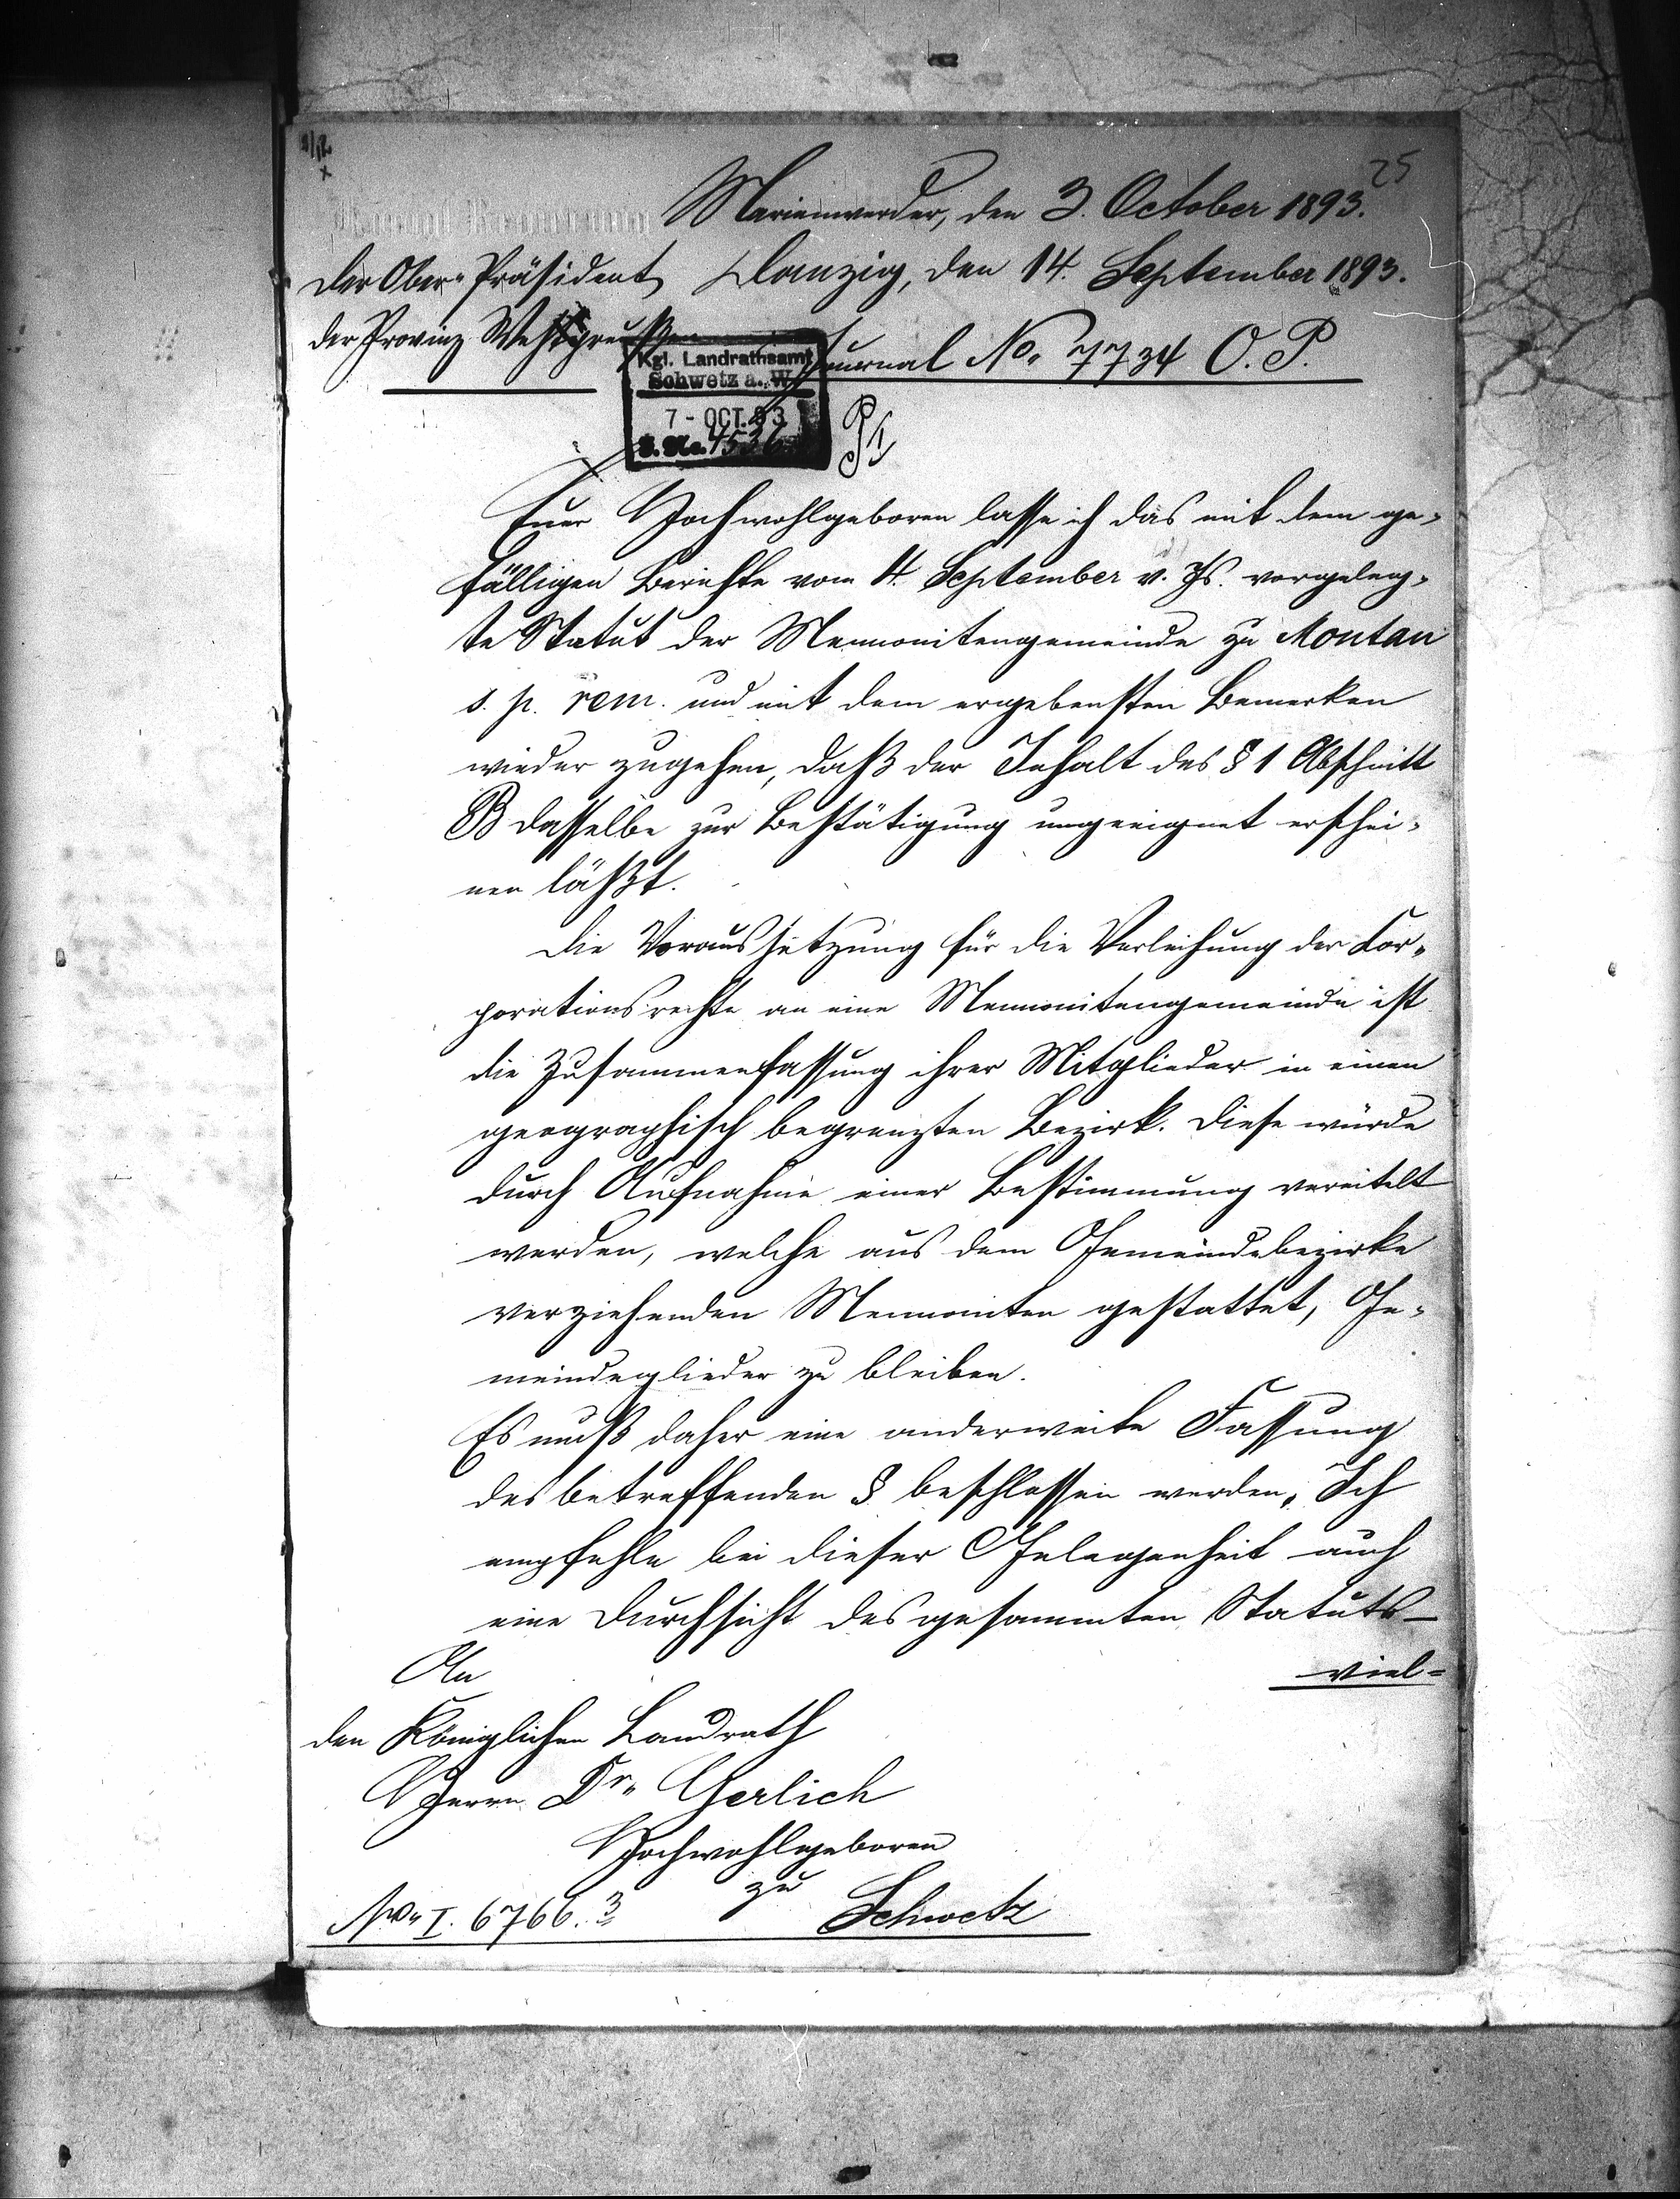 25
Marienwerder, den 3. October 1893.
Der Ober-Präsident Danzig, den 14. September 1893.
der Provinz Westpreußen
Journal No. 7734 O. P.
Kgl. Landrathsamt
Schwetz a. W.
7 - OCT. 93
J. No. 4536
Euer Hochwohlgeboren lasse ich das mit dem ge-
fälligen Berichte vom 4. September v. Js. vorgeleg-
te Statut der Mennonitengemeinde zu Montau
s. p. rem. und mit dem ergebensten Bemerken
wieder zugehen, daß der Inhalt des § 1 Abschnitt
B dasselbe zur Bestätigung ungeeignet erschei-
nen läßt.
Die Voraussetzung für die Verleihung der Kor-
porationsrechte an eine Mennonitengemeinde ist
die Zusammenfassung ihrer Mitglieder in einen
geographisch begrenzten Bezirk. Diese würde
durch Aufnahme einer Bestimmung vereitelt
werden, welche aus dem Gemeindebezirke
verziehenden Mennoniten gestattet, Ge-
meindeglieder zu bleiben.
Es muß daher eine anderweite Fassung
des betreffenden § beschlossen werden. Ich
empfehle bei dieser Gelegenheit auch
eine Durchsicht des gesammten Statuts-
viel-
An
den Königlichen Landrath
Herrn Dr. Gerlich
Hochwohlgeboren
zu
No. I. 6766. 3 Schwetz